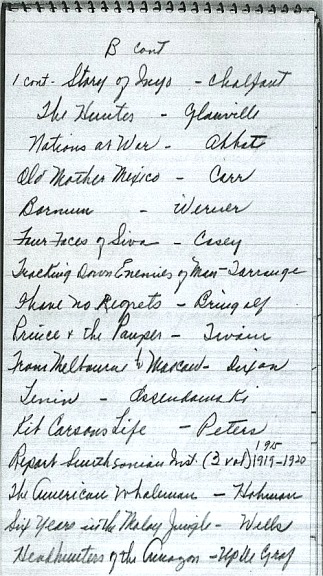 B cont
1 cont - Story of Inyo - Chalfant
The Hunter - Glanville
Nations at War - Abbot
Old Mother Mexico - Carr
Barnum - Werner
Four Faces of Siva - Casey
Tracking Down Enemies of Man - Torrance
I have no Regrets -
Prince & the Pauper - Twain
From Melbourne to Moscow - Dixon
Lenin - Ossendowski
Kit Carsons Life - Peters
Report Smithsonian Inst. (3 vol) 1915 1919-1920
The American Whaleman - Hohman
Six Years in the Malay Jungle - Wells
Headhunters of the Amazon - Up de Graf